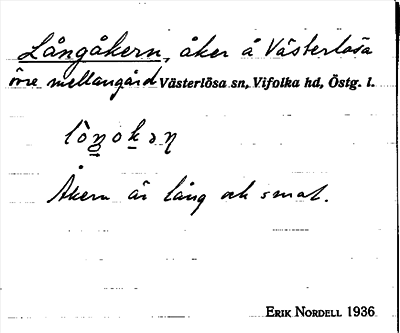 Långåkern, åker å Västerlösa
övre mellangård Västerlösa sn, Vifolka hd, Östg. l.
Åkern är lång och smal.
ERIK NORDELL 1936